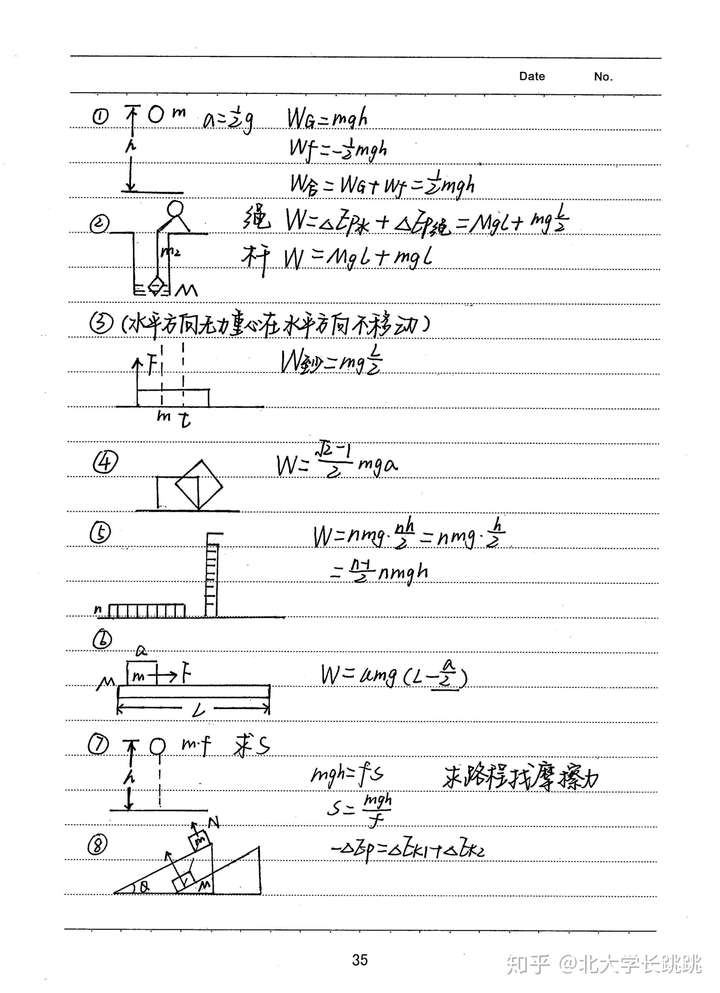 Date No.
① m a=½g W_G=mgh
h Wf=-½mgh
W合=W_G+Wf=½mgh
② 绳 W=△Ep水+△Ep绳=MgL+mg\frac{L}{2}
m₂ 杆 W=MgL+mgL
M
③(水平方向无力重心在水平方向不移动)
F W至少=mg\frac{L}{2}
m t
④ W=\frac{√2-1}{2}mga
⑤ W=nmg·\frac{nh}{2}=nmg·\frac{h}{2}
n =\frac{n-1}{2}nmgh
⑥
a
M m F W=umg(L-\frac{a}{2})
L
⑦ m·f 求S
h mgh=fs 求路程找摩擦力
S=\frac{mgh}{f}
⑧ m N -△Ep=△Ek₁+△Ek₂
θ V M
35
知乎 @北大学长跳跳